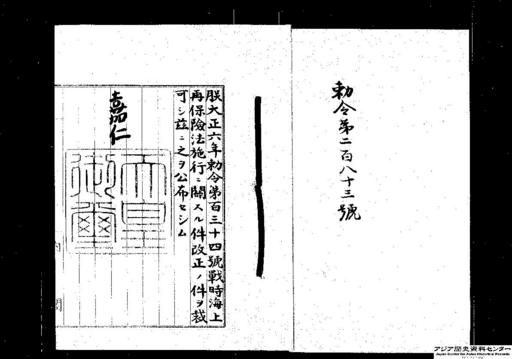 勅令第二百八十三號
朕大正六年勅令第百三十四號戰時海上
再保險法施行ニ關スル件改正ノ件ヲ裁
可シ茲ニ之ヲ公布セシム
嘉仁
天皇
御璽
アジア歴史資料センター
Japan Center for Asian Historical Records